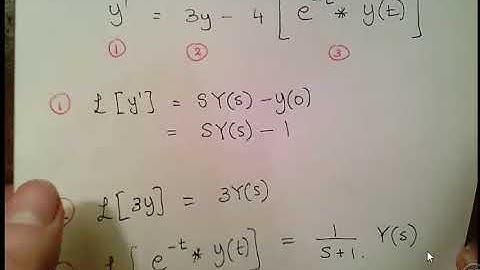 y' = 3y - 4 [ e^-t * y(t) ]
① ② ③
① ℒ[y'] = SY(s) - y(0)
= SY(s) - 1
② ℒ[3y] = 3Y(s)
ℒ[ e^-t * y(t) ] = 1/(S+1) . Y(s)